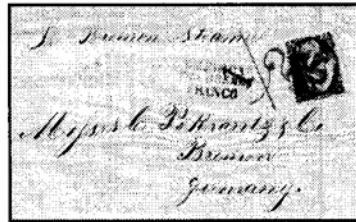 p. Bremen Steamer
FRANCO
Messrs C. Pokrantz & Co.
Bremen
Germany.